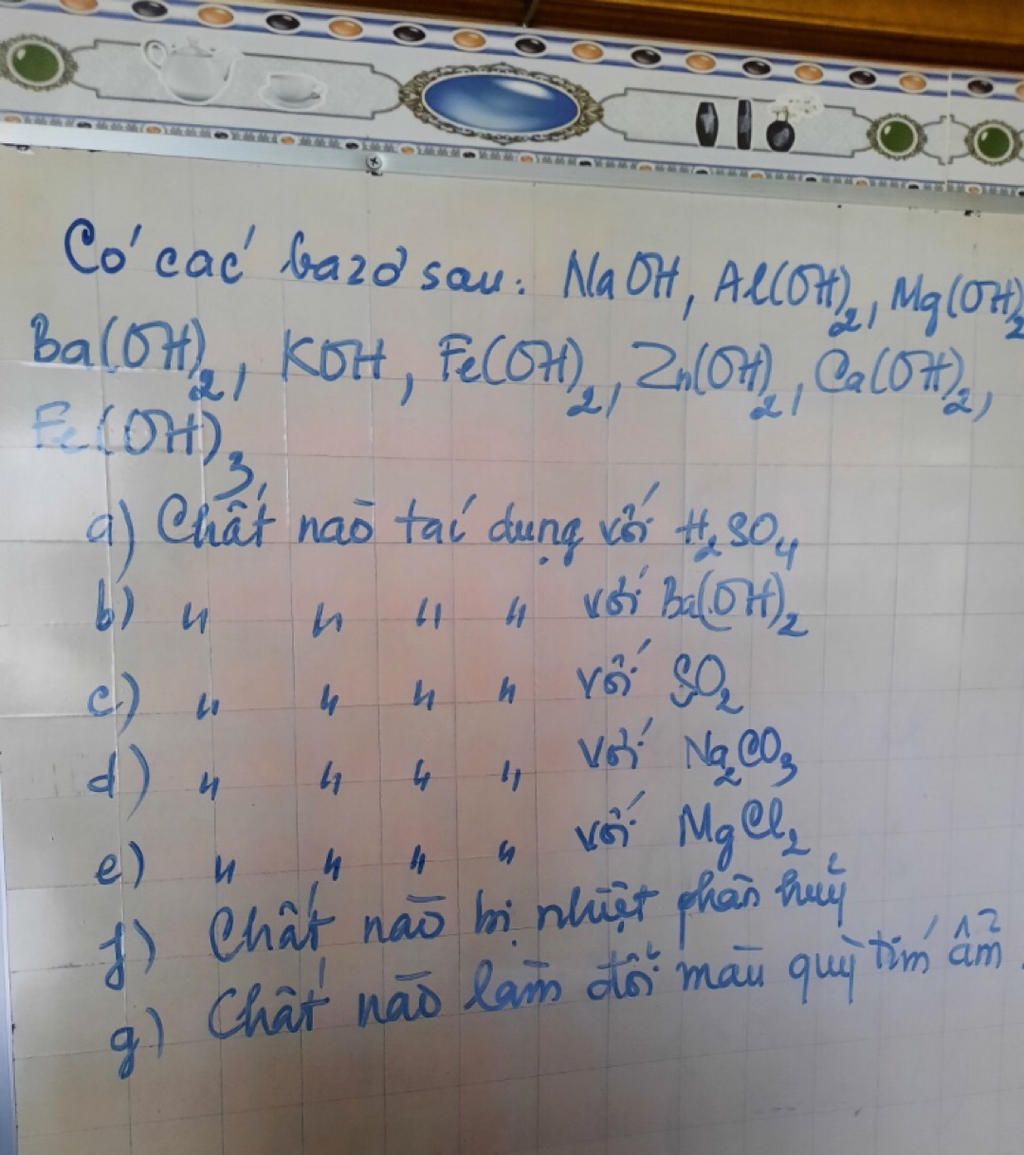 Có các bazơ sau: NaOH, Al(OH)₂, Mg(OH)₂
Ba(OH)₂, KOH, Fe(OH)₂, Zn(OH)₂, Ca(OH)₂,
Fe(OH)₃,
a) Chất nào tác dụng với H₂SO₄
b) " " " " với Ba(OH)₂
c) " " " " với SO₂
d) " " " " với Na₂CO₃
e) " " " " với MgCl₂
f) Chất nào bị nhiệt phân huỷ
g) Chất nào làm đổi màu quỳ tím ẩm.